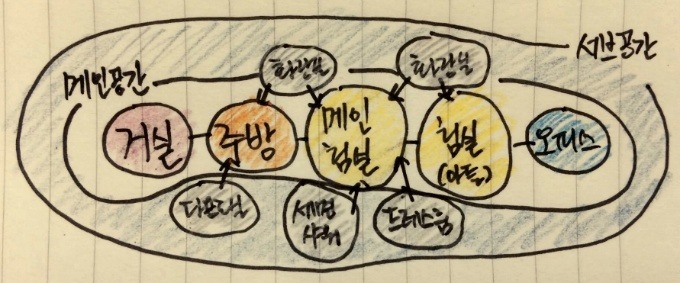 서브공간
화장실
화장실
메인공간
거실
주방
메인
침실
침실
(아들)
오피스
다용도실
세면
샤워
드레스룸